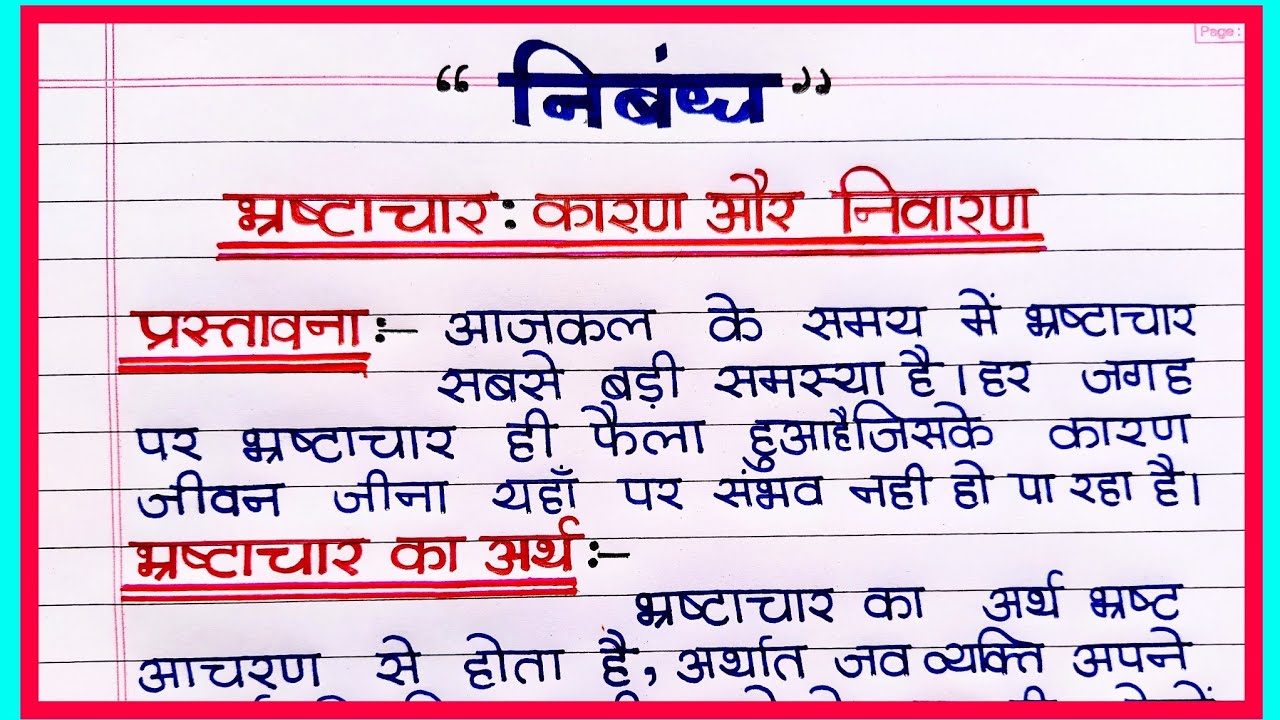 Page:
“निबंध”
भ्रष्टाचार: कारण और निवारण
प्रस्तावना:- आजकल के समय में भ्रष्टाचार
सबसे बड़ी समस्या है। हर जगह
पर भ्रष्टाचार ही फैला हुआहैजिसके कारण
जीवन जीना यहाँ पर संभव नही हो पा रहा है।
भ्रष्टाचार का अर्थ:-
भ्रष्टाचार का अर्थ भ्रष्ट
आचरण से होता है, अर्थात जव व्यक्ति अपने